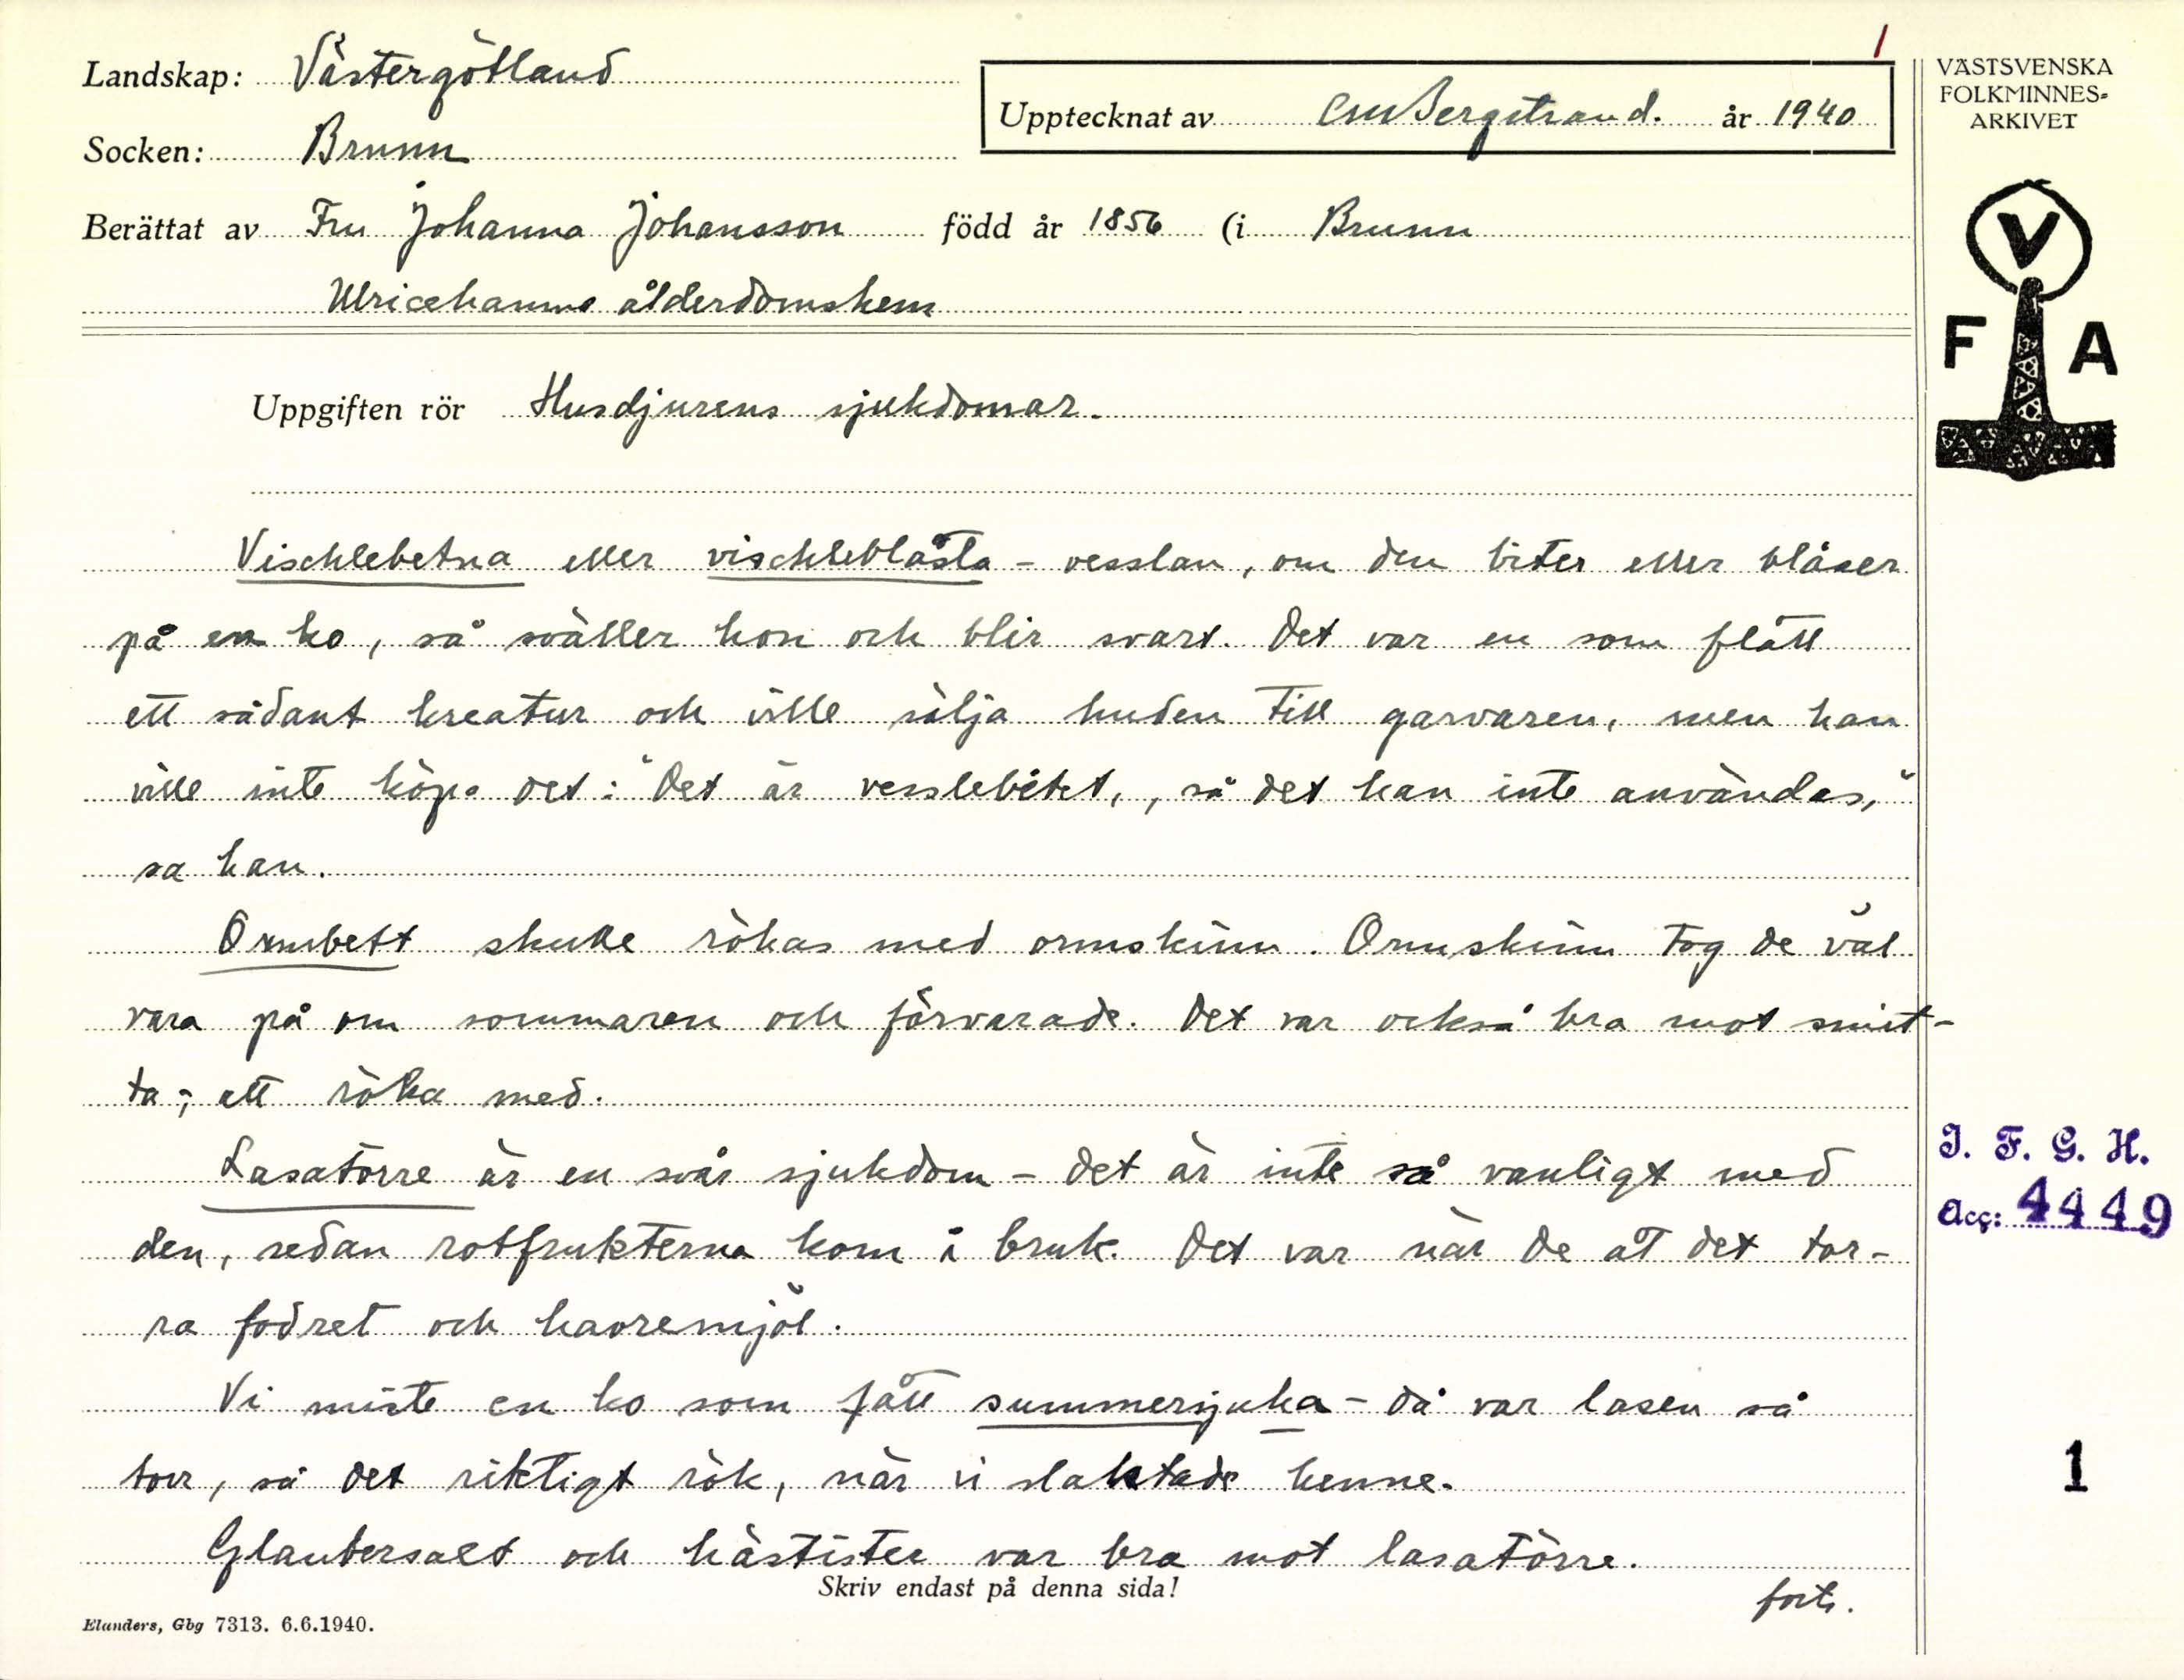 1
Landskap: Västergötland
Upptecknat av CMBergstrand. år 1940
VÄSTSVENSKA
FOLKMINNES-
ARKIVET
Socken: Brunn
Berättat av Fru Johanna Johansson född år 1856 (i Brunn
Ulricehamns ålderdomshem
V
F A
Uppgiften rör Husdjurens sjukdomar.
Vischlebetna eller vischleblåsta - vesslan, om den biter eller blåser
på en ko, så sväller hon och blir svart. Det var en som flått
ett sådant kreatur och ville sälja huden till garvaren, men han
ville inte köpa det: "Det är vesslebitet, så det kan inte användas,"
sa han.
Ormbett skulle rökas med ormskinn. Ormskinn tog de väl
vara på om sommaren och förvarade. Det var också bra mot smit-
ta; att röka med.
Lasatörre är en svår sjukdom - det är inte så vanligt med
den, sedan rotfrukterna kom i bruk. Det var när de åt det tor-
ra fodret och havremjöl.
Vi miste en ko som fått summersjuka - då var lasen så
torr, så det riktigt rök, när vi slaktade henne.
Glaubersalt och hästister var bra mot lasatörre.
forts.
Skriv endast på denna sida!
Elanders, Gbg 7313. 6.6.1940.
I. F. G. H.
Acc: 4449
1